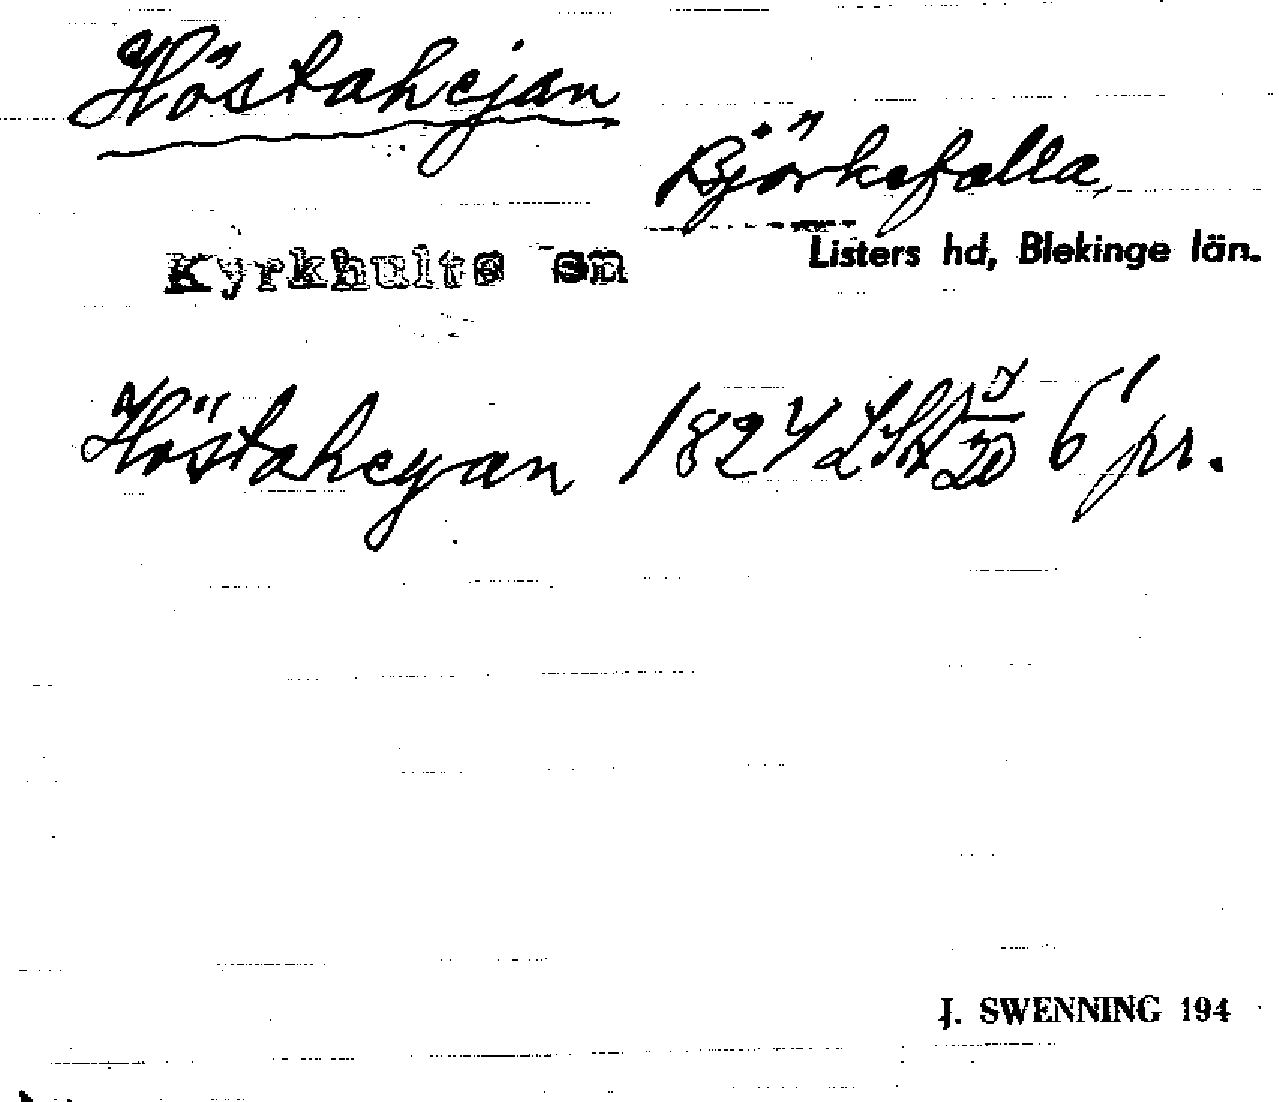 Höstahejan
Björkefalla,
Kyrkhults sn
Listers hd, Blekinge län.
Höstaheyan 1824 6 pr.
J. SWENNING 194